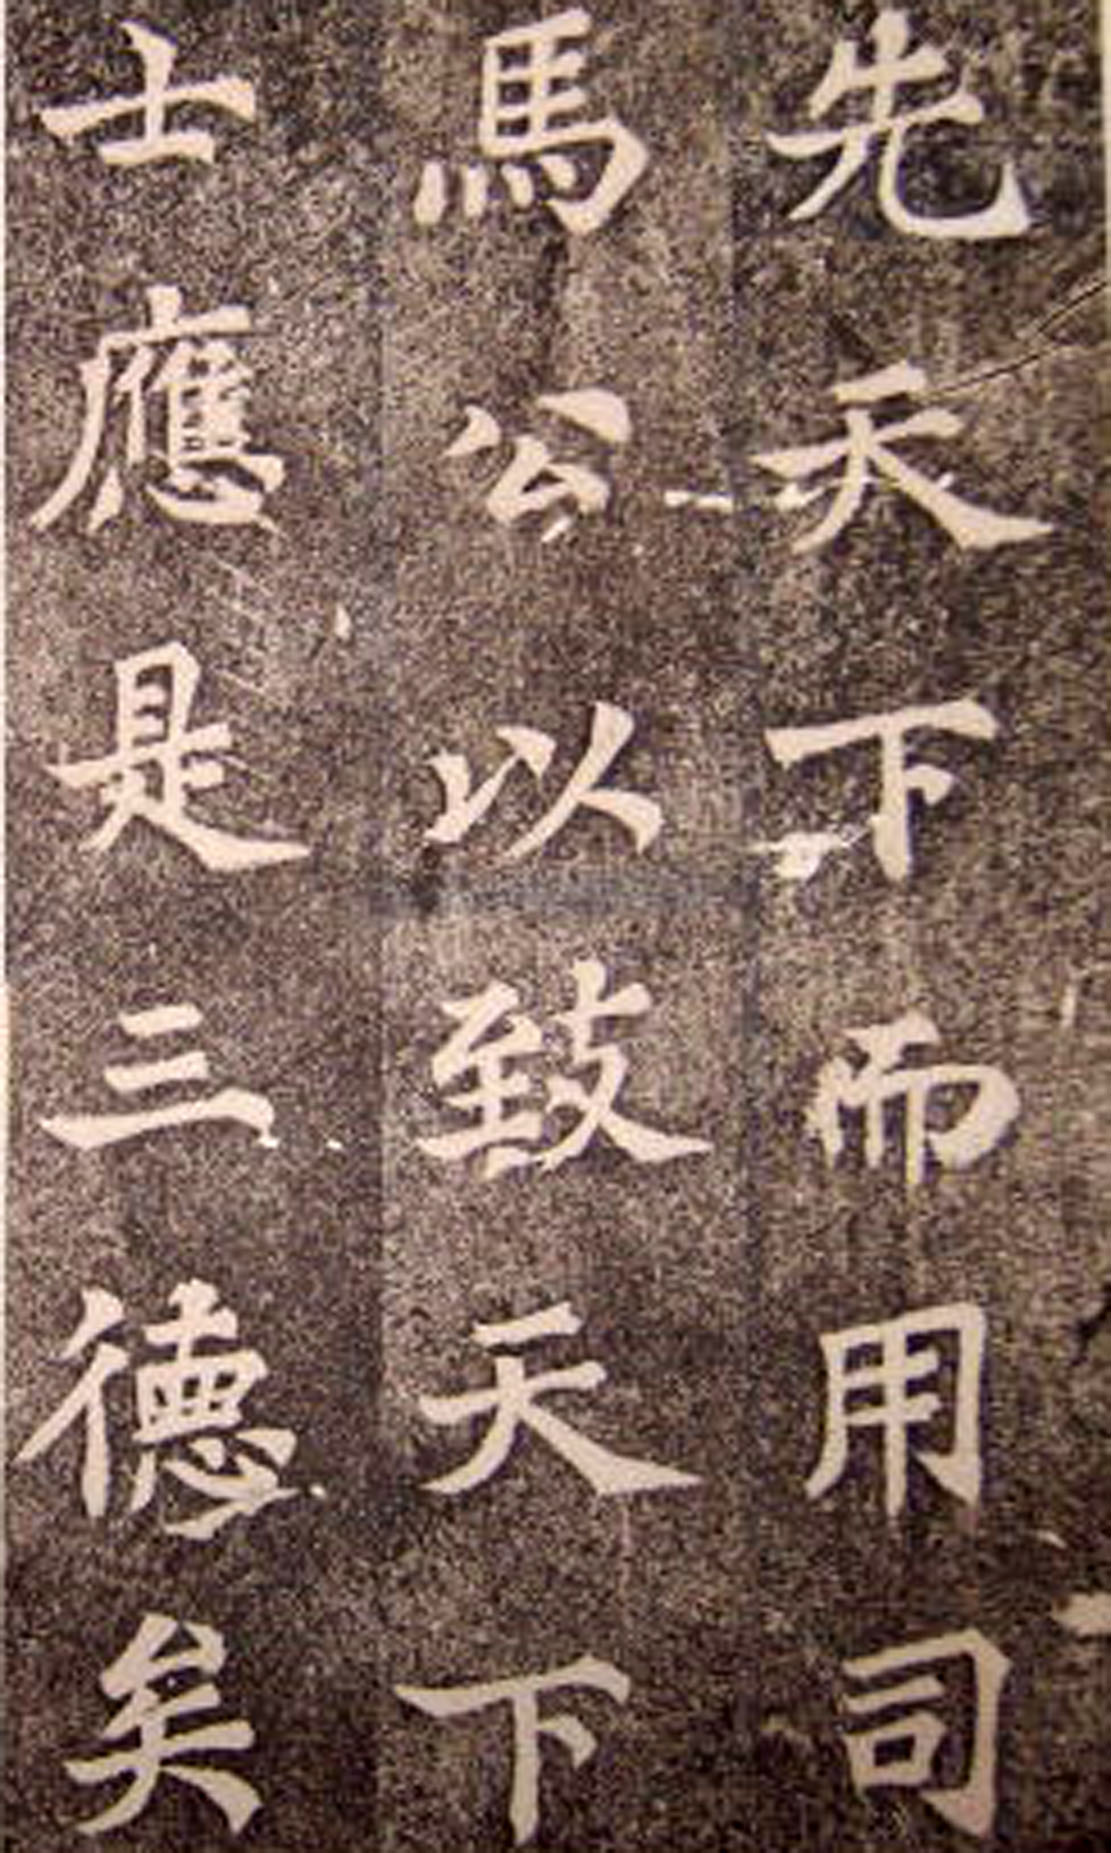 先天下而用司
馬公以致天下
士應是三德矣